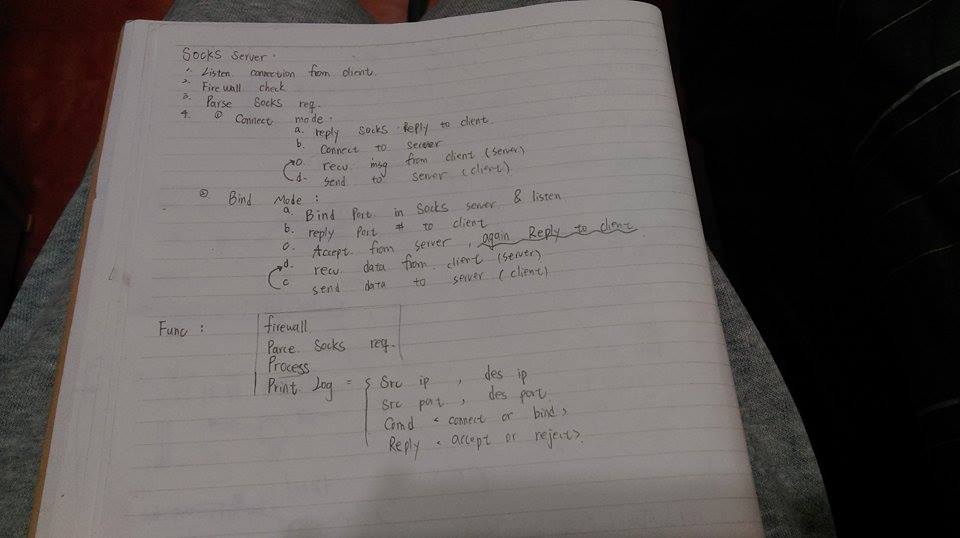 Socks server.
1. Listen connection from client.
2. Fire wall check
3. Parse Socks req.
4. ① Connect mode:
a. reply Socks Reply to client.
b. Connect to server
c. recv msg from client (server)
d. send to server (client)
② Bind Mode:
a. Bind Port in Socks server & listen
b. reply Port # to client
c. Accept from server, again Reply to client
d. recv data from client (server)
c send data to server (client)
Func :
firewall
Parce Socks req.
Process
Print Log = { Src ip , des ip
Src port , des port
Comd < connect or bind >
Reply < accept or reject >.